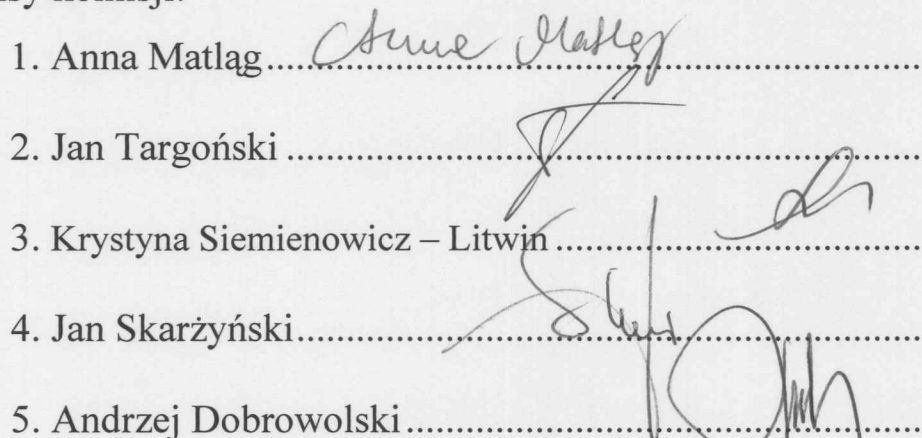 1. Anna Matląg.......... Anna Matląg
2. Jan Targoński ..........
3. Krystyna Siemienowicz – Litwin ..........
4. Jan Skarżyński..........
5. Andrzej Dobrowolski..........